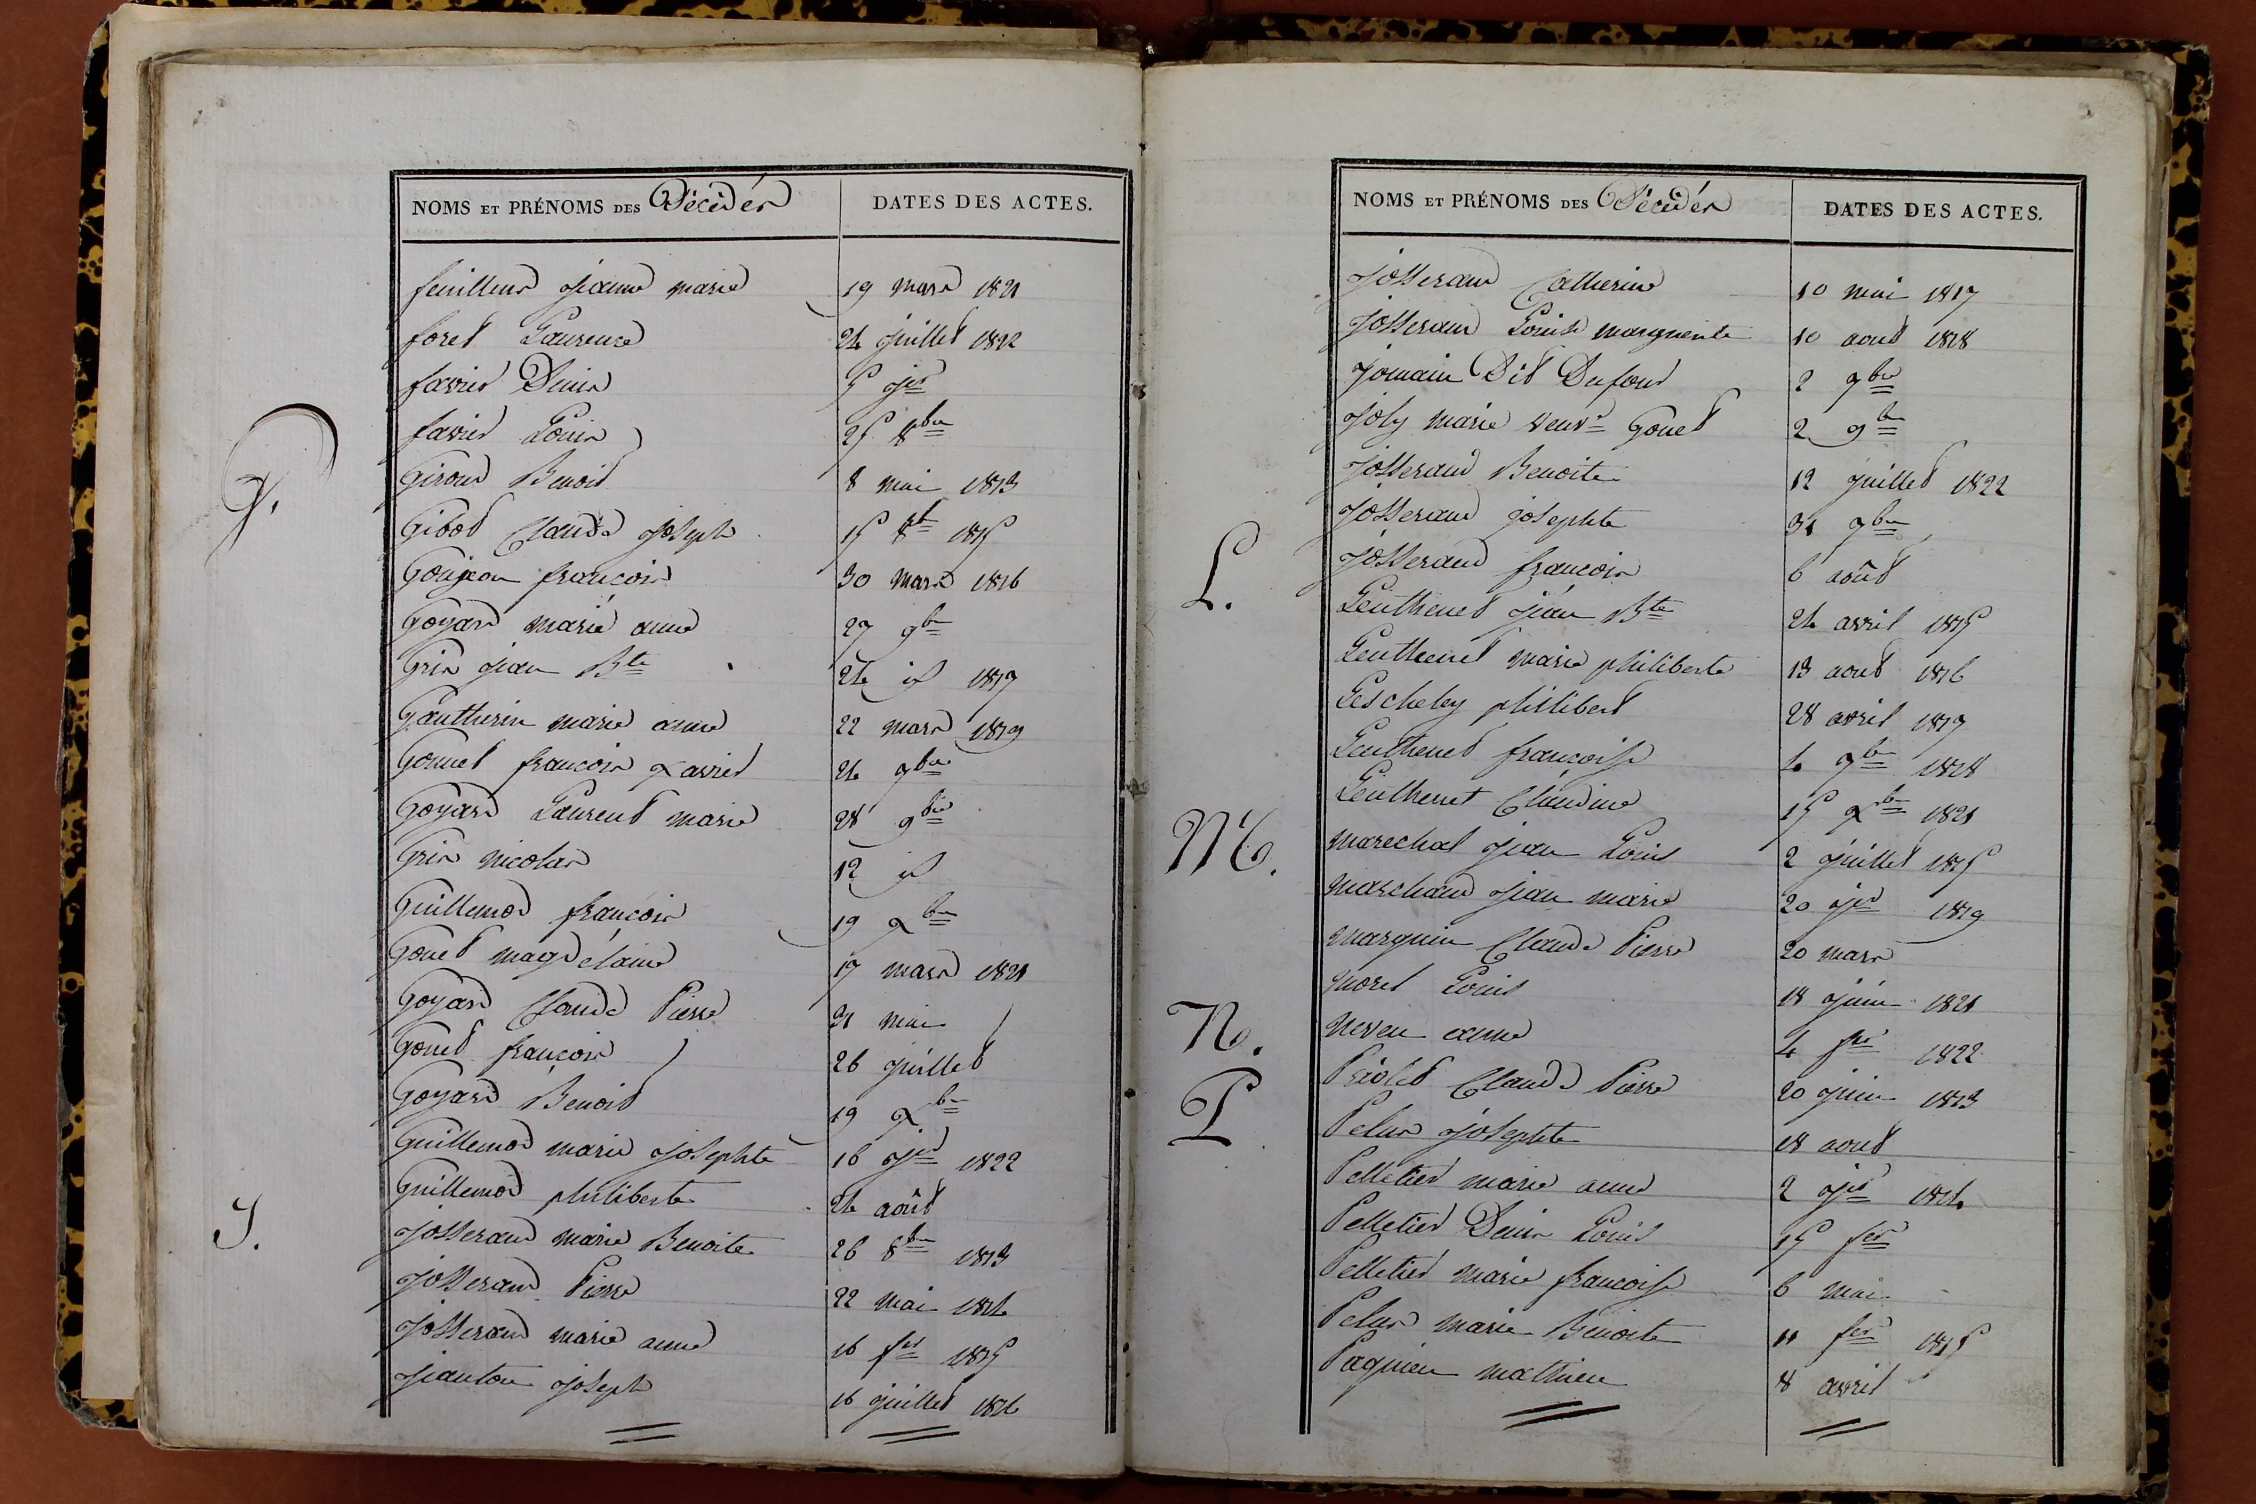 NOMS ET PRÉNOMS DES Décédés DATES DES ACTES.
feuilleur jeanne marie 19 mars 1821
foret Laurence 24 juillet 1822
favier Denis 5 jer
favier Louis 25 8bre
G.
Giroud Benoit 8 mai 1813
Gibod Claude joseph 15 8b 1815
Goujeon françois 30 mars 1816
Goyard marie anne 27 9bre
Gris jean Bte 24 id 1817
Gautherin marie anne 22 mars 1819
Gonnet françois xavier 24 9bre
Goyard Laurent marie 28 9bre
Gris nicolas 12 id
Guillemod françois 19 xbre
Gonet magdelaine 17 mars 1821
Goyard Claude Pierre 31 mai
Gonet françois 26 juillet
Goyard Benoit 19 xbre
Guillemod marie josephte 16 jer 1822
Guillemod philiberte 24 août
J.
josserand marie Benoite 26 8bre 1813
josserand Pierre 22 mai 1814
josserand marie anne 16 fer 1815
jeanton joseph 16 juillet 1816
NOMS ET PRÉNOMS DES Décédés DATES DES ACTES.
josserand Catherine 10 mai 1817
josserand Louise marguerite 10 aout 1818
jomain Dit Dufour 2 9bre
joly marie veuve Gonet 2 9b
josserand Benoite 12 juillet 1822
josserand josephte 31 9bre
josserand françois 6 août
L.
Leuthenet jean Bte 24 avril 1815
Leuthenet marie philiberte 13 aout 1816
Lescheley philibert 28 avril 1817
Leuthenet françoise 4 9b 1818
Leuthenet Claudine 15 xbre 1821
M.
marechal jean Louis 2 juillet 1815
marchand jean marie 20 jer 1819
marguin Claude Pierre 20 mars
morel Louis 18 juin 1821
N.
neveu anne 4 fer 1822
P
Priolet Claude Pierre 20 juin 1813
Pelus josephte 18 aout
Pelletier marie anne 2 jer 1814
Pelletier Denis Louis 15 fer
Pelletier marie françoise 6 mai
Pelus marie Benoite 11 fer 1815
Paquien mathieu 8 avril